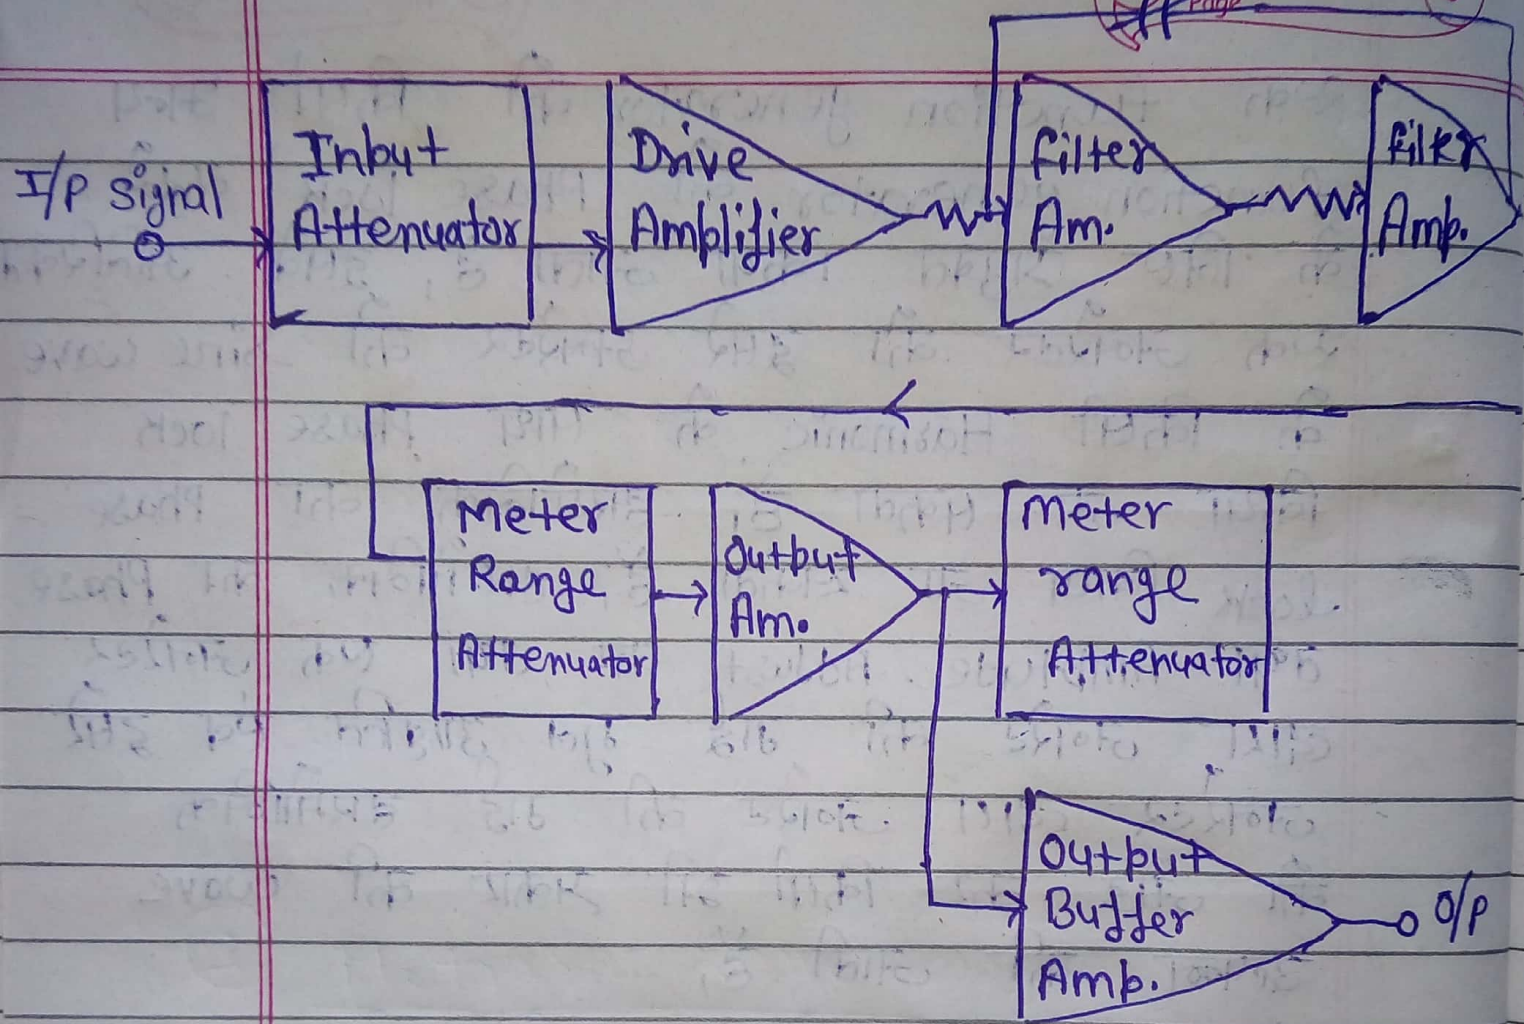 Page
I/P Signal
Input
Attenuator
Drive
Amplifier
Filter
Am.
Filter
Amp.
Meter
Range
Attenuator
Output
Am.
Meter
range
Attenuator
Output
Buffer
Amp.
O/P